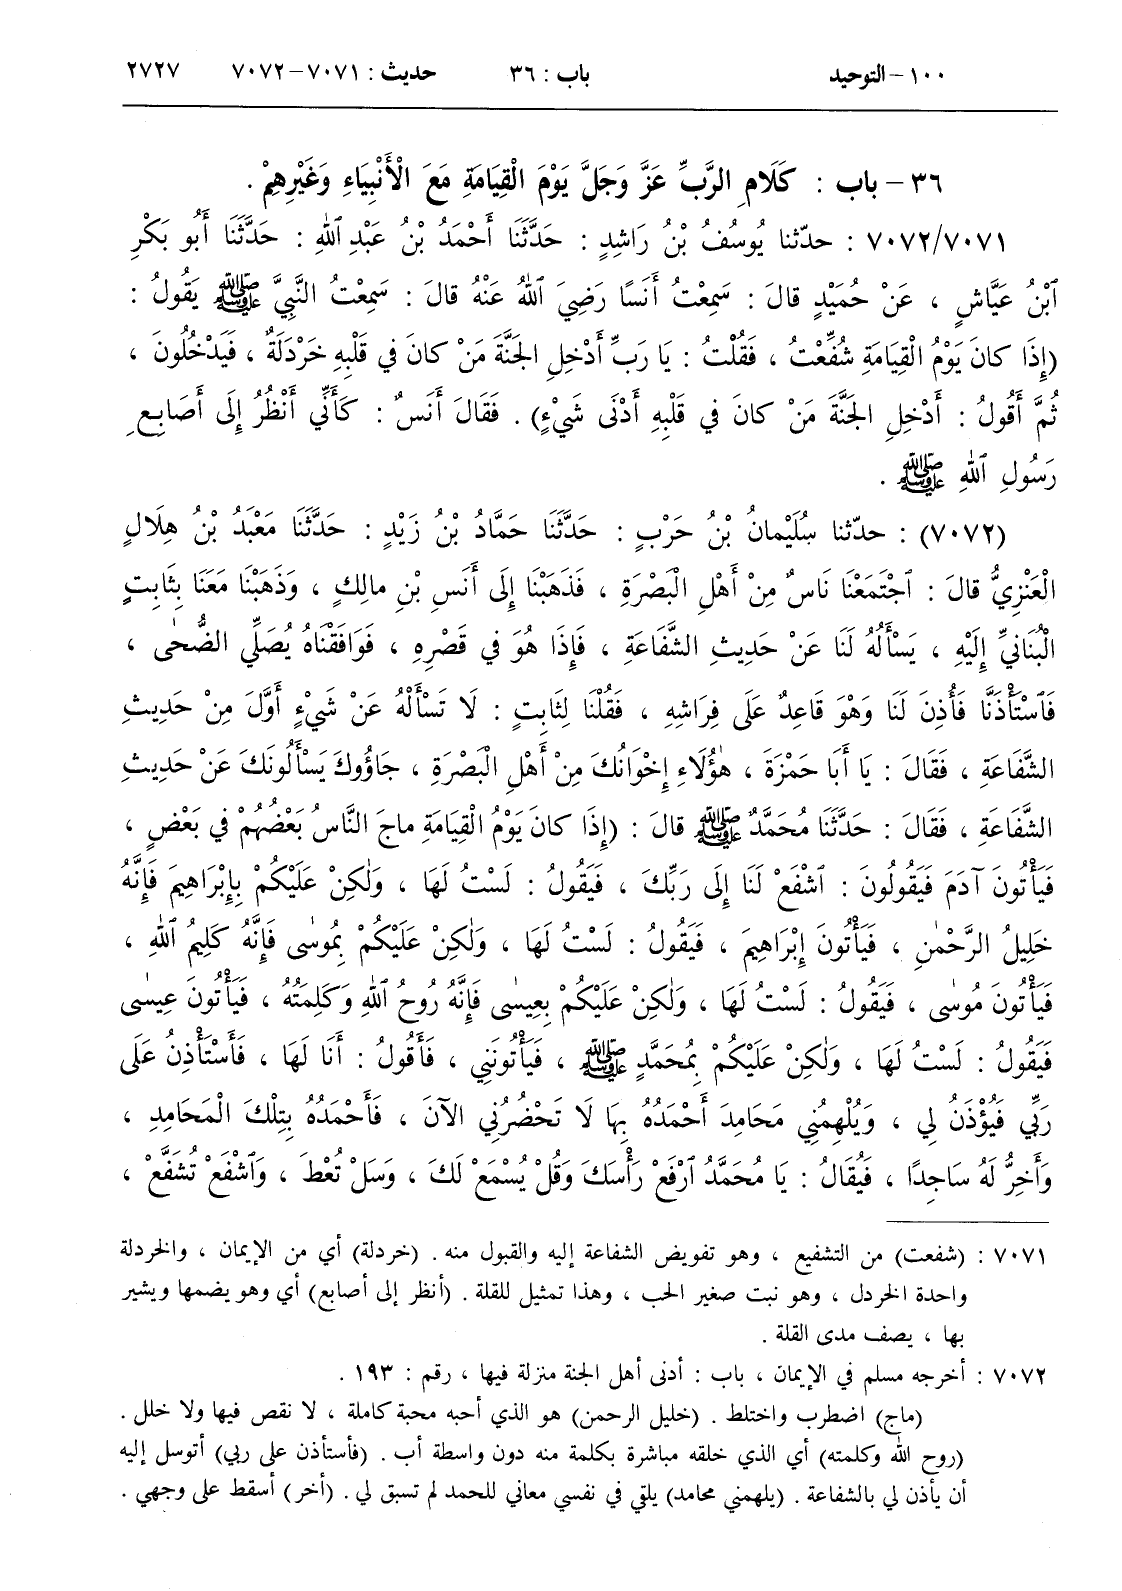 ١٠٠ – التوحيد باب : ٣٦ حديث : ٧٠٧١–٧٠٧٢ ٢٧٢٧
٣٦ – باب : كَلَامِ الرَّبِّ عَزَّ وَجَلَّ يَوْمَ الْقِيَامَةِ مَعَ الْأَنْبِيَاءِ وَغَيْرِهِمْ .
٧٠٧٢/٧٠٧١ : حدّثنا يُوسُفُ بْنُ رَاشِدٍ : حَدَّثَنَا أَحْمَدُ بْنُ عَبْدِ ٱللهِ : حَدَّثَنَا أَبُو بَكْرِ
ٱبْنُ عَيَّاشٍ ، عَنْ حُمَيْدٍ قالَ : سَمِعْتُ أَنَسًا رَضِيَ ٱللهُ عَنْهُ قالَ : سَمِعْتُ النَّبِيَّ ﷺ يَقُولُ :
(إِذَا كانَ يَوْمُ الْقِيَامَةِ شُفِّعْتُ ، فَقُلْتُ : يَا رَبِّ أَدْخِلِ الجَنَّةَ مَنْ كانَ في قَلْبِهِ خَرْدَلَةٌ ، فَيَدْخُلُونَ ،
ثُمَّ أَقُولُ : أَدْخِلِ الجَنَّةَ مَنْ كانَ في قَلْبِهِ أَدْنَى شَيْءٍ) . فَقَالَ أَنَسٌ : كَأَنِّي أَنْظُرُ إِلَى أَصَابِعِ
رَسُولِ ٱللهِ ﷺ .
(٧٠٧٢) : حدّثنا سُلَيْمانُ بْنُ حَرْبٍ : حَدَّثَنَا حَمَّادُ بْنُ زَيْدٍ : حَدَّثَنَا مَعْبَدُ بْنُ هِلَالٍ
الْعَنَزِيُّ قالَ : ٱجْتَمَعْنَا نَاسٌ مِنْ أَهْلِ الْبَصْرَةِ ، فَذَهَبْنَا إِلَى أَنَسِ بْنِ مالِكٍ ، وَذَهَبْنَا مَعَنَا بِثَابِتٍ
الْبُنَانِيِّ إِلَيْهِ ، يَسْأَلُهُ لَنَا عَنْ حَدِيثِ الشَّفَاعَةِ ، فَإِذَا هُوَ في قَصْرِهِ ، فَوَافَقْنَاهُ يُصَلِّي الضُّحٰى ،
فَٱسْتَأْذَنَّا فَأَذِنَ لَنَا وَهْوَ قَاعِدٌ عَلَى فِرَاشِهِ ، فَقُلْنَا لِثَابِتٍ : لَا تَسْأَلْهُ عَنْ شَيْءٍ أَوَّلَ مِنْ حَدِيثِ
الشَّفَاعَةِ ، فَقَالَ : يَا أَبَا حَمْزَةَ ، هٰؤُلَاءِ إِخْوَانُكَ مِنْ أَهْلِ الْبَصْرَةِ ، جَاؤُوكَ يَسْأَلُونَكَ عَنْ حَدِيثِ
الشَّفَاعَةِ ، فَقَالَ : حَدَّثَنَا مُحَمَّدٌ ﷺ قالَ : (إِذَا كانَ يَوْمُ الْقِيَامَةِ ماجَ النَّاسُ بَعْضُهُمْ في بَعْضٍ ،
فَيَأْتُونَ آدَمَ فَيَقُولُونَ : ٱشْفَعْ لَنَا إِلَى رَبِّكَ ، فَيَقُولُ : لَسْتُ لَهَا ، وَلٰكِنْ عَلَيْكُمْ بِإِبْرَاهِيمَ فَإِنَّهُ
خَلِيلُ الرَّحْمٰنِ ، فَيَأْتُونَ إِبْرَاهِيمَ ، فَيَقُولُ : لَسْتُ لَهَا ، وَلٰكِنْ عَلَيْكُمْ بِمُوسٰى فَإِنَّهُ كَلِيمُ ٱللهِ ،
فَيَأْتُونَ مُوسٰى ، فَيَقُولُ : لَسْتُ لَهَا ، وَلٰكِنْ عَلَيْكُمْ بِعِيسٰى فَإِنَّهُ رُوحُ ٱللهِ وَكَلِمَتُهُ ، فَيَأْتُونَ عِيسٰى
فَيَقُولُ : لَسْتُ لَهَا ، وَلٰكِنْ عَلَيْكُمْ بِمُحَمَّدٍ ﷺ ، فَيَأْتُونَنِي ، فَأَقُولُ : أَنَا لَهَا ، فَأَسْتَأْذِنُ عَلَى
رَبِّي فَيُؤْذَنُ لِي ، وَيُلْهِمُنِي مَحَامِدَ أَحْمَدُهُ بِهَا لَا تَحْضُرُنِي الآنَ ، فَأَحْمَدُهُ بِتِلْكَ الْمَحَامِدِ ،
وَأَخِرُّ لَهُ سَاجِدًا ، فَيُقَالُ : يَا مُحَمَّدُ ٱرْفَعْ رَأْسَكَ وَقُلْ يُسْمَعْ لَكَ ، وَسَلْ تُعْطَ ، وَٱشْفَعْ تُشَفَّعْ ،
٧٠٧١ : (شفعت) من التشفيع ، وهو تفويض الشفاعة إليه والقبول منه . (خردلة) أي من الإيمان ، والخردلة
واحدة الخردل ، وهو نبت صغير الحب ، وهذا تمثيل للقلة . (أنظر إلى أصابع) أي وهو يضمها ويشير
بها ، يصف مدى القلة .
٧٠٧٢ : أخرجه مسلم في الإيمان ، باب : أدنى أهل الجنة منزلة فيها ، رقم : ١٩٣ .
(ماج) اضطرب واختلط . (خليل الرحمن) هو الذي أحبه محبة كاملة ، لا نقص فيها ولا خلل .
(روح الله وكلمته) أي الذي خلقه مباشرة بكلمة منه دون واسطة أب . (فأستأذن على ربي) أتوسل إليه
أن يأذن لي بالشفاعة . (يلهمني محامد) يلقي في نفسي معاني للحمد لم تسبق لي . (أخر) أسقط على وجهي .